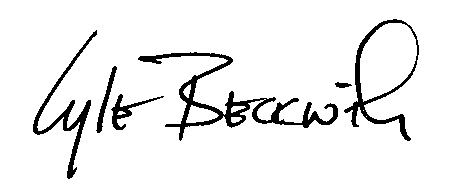 Lyle Beckwith